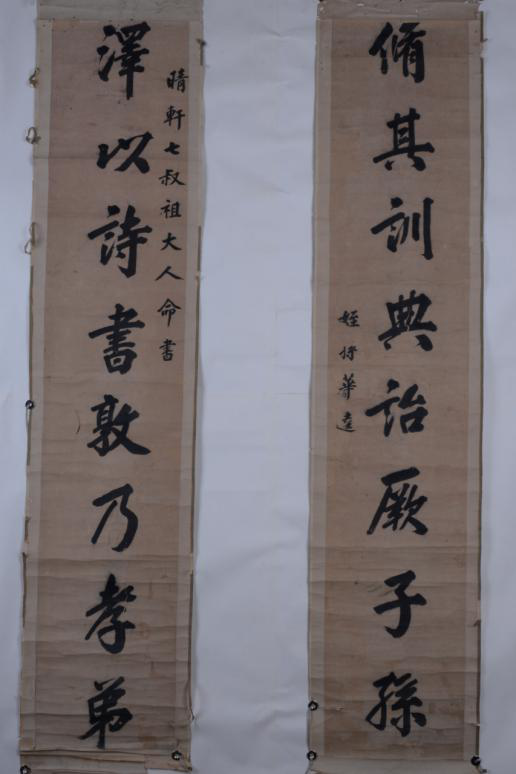 晴軒七叔祖大人命書
澤以詩書敦乃孝弟
脩其訓典詒厥子孫
姪孫華